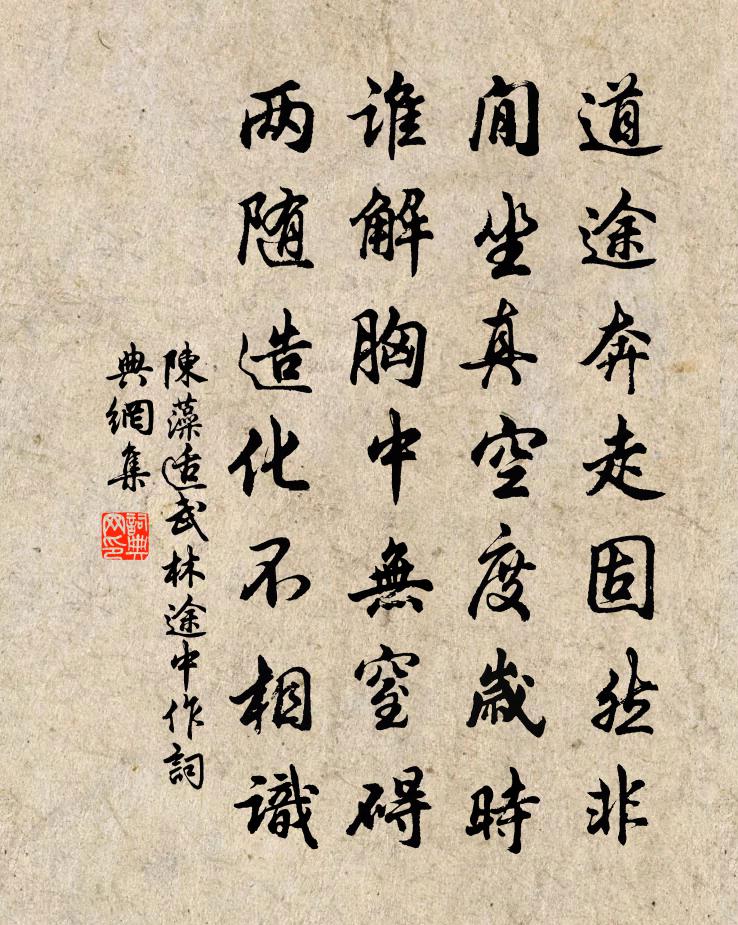 道途奔走固然非
閒坐真空度歲時
谁解胸中無窒碍
两随造化不相識
陳藻适武林途中作詞
典網集
詞典
网印